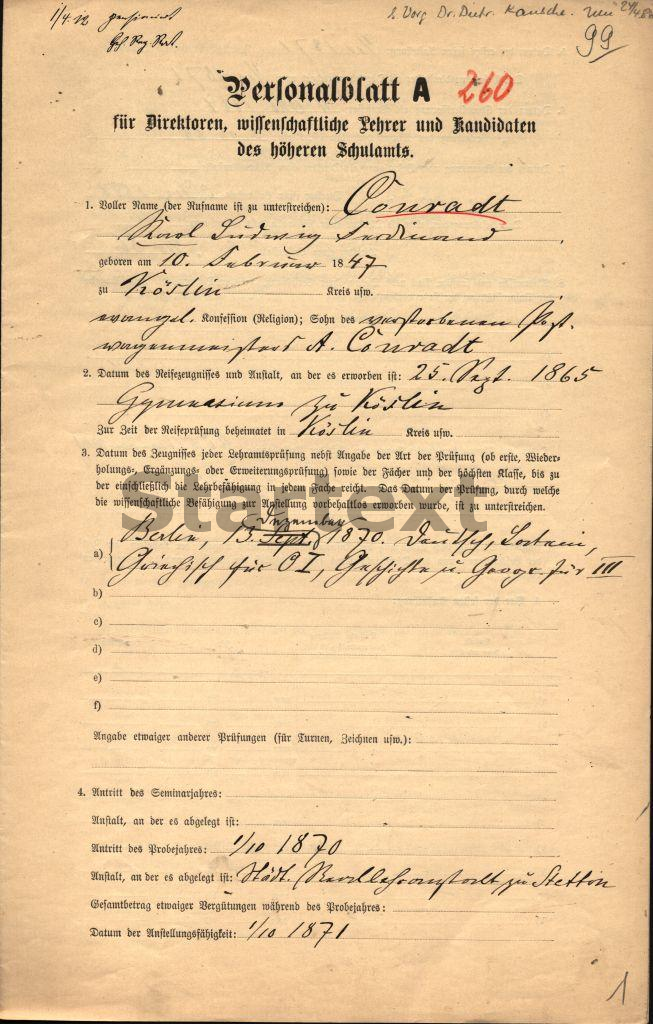 1/4.12 pensioniert
Geh. Reg. Rat.
s. Vorg. Dr. Dietr. Kausche.
99
Personalblatt A 260
für Direktoren, wissenschaftliche Lehrer und Kandidaten
des höheren Schulamts.
1. Voller Name (der Rufname ist zu unterstreichen): Conradt
Karl Ludwig Ferdinand
geboren am 10. Februar 1847
zu Köslin Kreis usw.
evangel. Konfession (Religion); Sohn des verstorbenen Post-
wagenmeisters A. Conradt
2. Datum des Reifezeugnisses und Anstalt, an der es erworben ist: 25. Sept. 1865
Gymnasium zu Köslin
Zur Zeit der Reifeprüfung beheimatet in Köslin Kreis usw.
3. Datum des Zeugnisses jeder Lehramtsprüfung nebst Angabe der Art der Prüfung (ob erste, Wieder-
holungs-, Ergänzungs- oder Erweiterungsprüfung) sowie der Fächer und der höchsten Klasse, bis zu
der einschließlich die Lehrbefähigung in jedem Fache reicht. Das Datum der Prüfung, durch welche
die wissenschaftliche Befähigung zur Anstellung vorbehaltlos erworben wurde, ist zu unterstreichen.
Startext
Dezember
Berlin, 13. Sept. 1870. Deutsch, Latein,
a) Griechisch für O I, Geschichte u. Geogr. für III
b)
c)
d)
e)
f)
Angabe etwaiger anderer Prüfungen (für Turnen, Zeichnen usw.):
4. Antritt des Seminarjahres:
Anstalt, an der es abgelegt ist:
Antritt des Probejahres: 1/10 1870
Anstalt, an der es abgelegt ist: Städt. Reallehranstalt zu Stettin
Gesamtbetrag etwaiger Vergütungen während des Probejahres:
Datum der Anstellungsfähigkeit: 1/10 1871
1